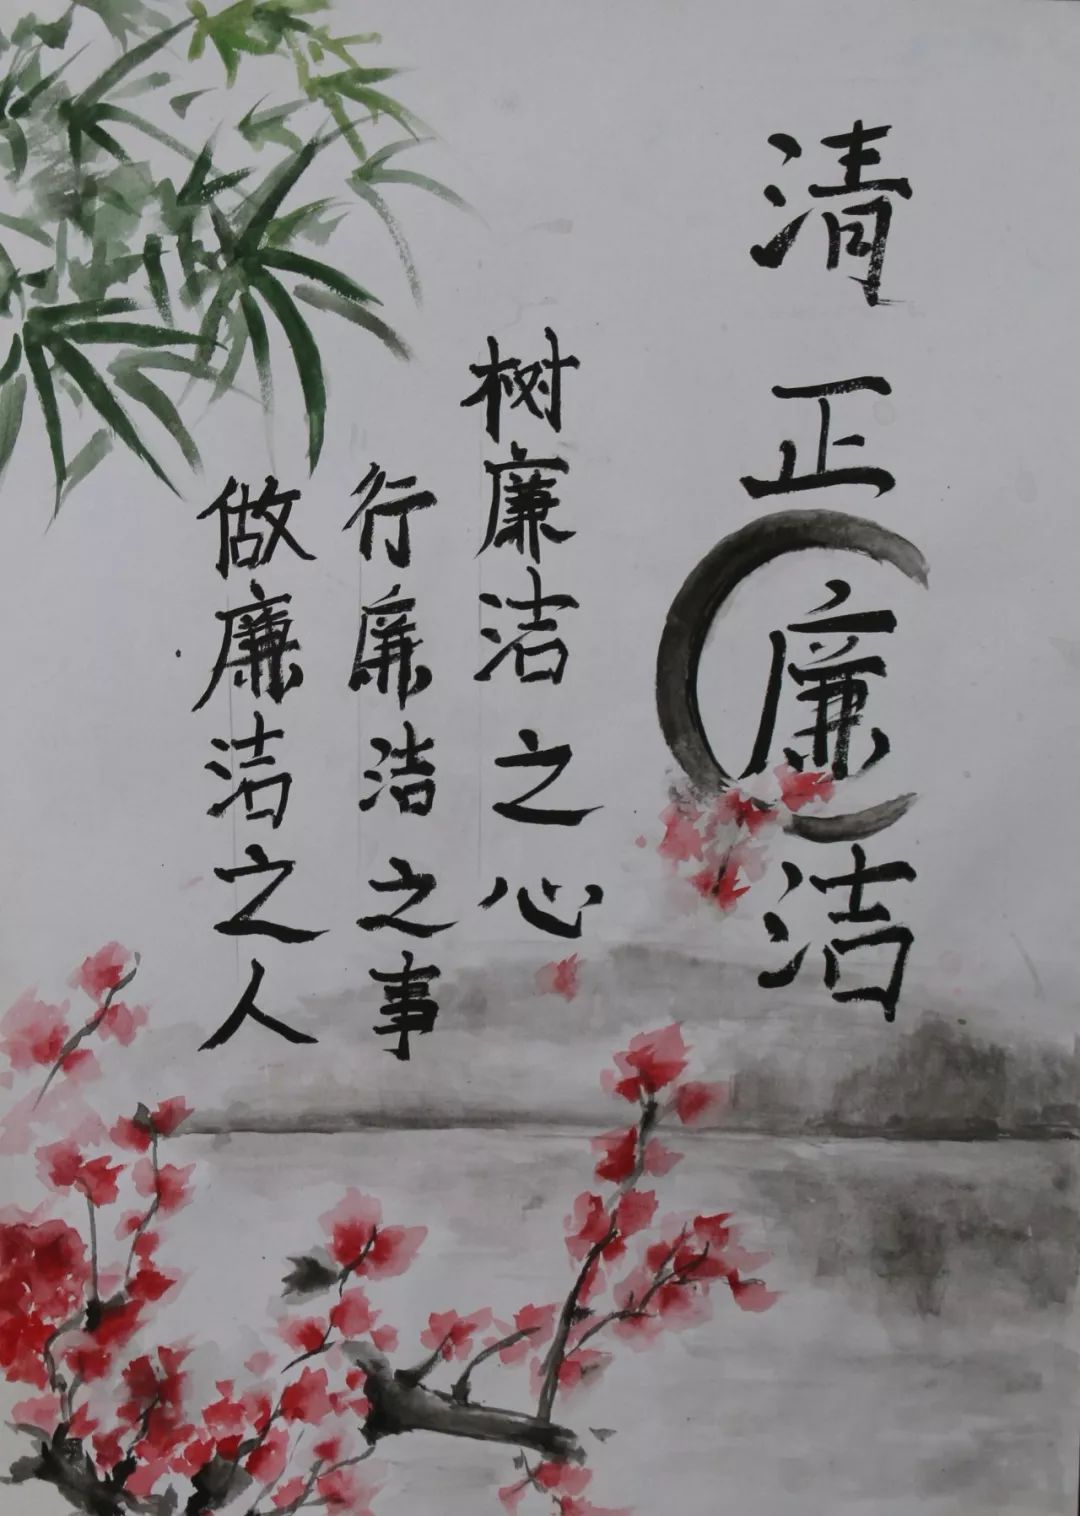 清正廉洁
树廉洁之心
行廉洁之事
做廉洁之人